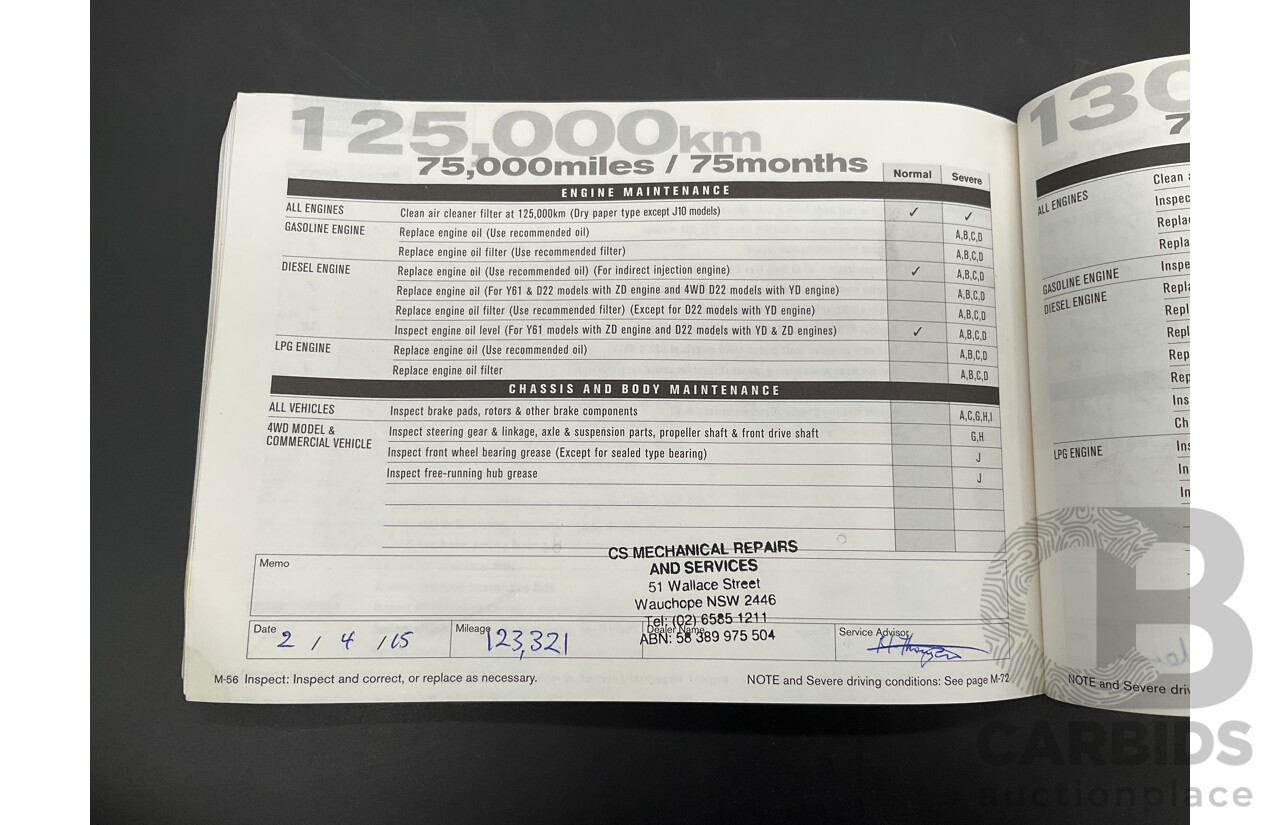 125,000km
75,000miles / 75months
Normal Severe
ENGINE MAINTENANCE
ALL ENGINES Clean air cleaner filter at 125,000km (Dry paper type except J10 models) ✓ ✓
GASOLINE ENGINE Replace engine oil (Use recommended oil) A,B,C,D
Replace engine oil filter (Use recommended filter) A,B,C,D
DIESEL ENGINE Replace engine oil (Use recommended oil) (For indirect injection engine) ✓ A,B,C,D
Replace engine oil (For Y61 & D22 models with ZD engine and 4WD D22 models with YD engine) A,B,C,D
Replace engine oil filter (Use recommended filter) (Except for D22 models with YD engine) A,B,C,D
Inspect engine oil level (For Y61 models with ZD engine and D22 models with YD & ZD engines) ✓ A,B,C,D
LPG ENGINE Replace engine oil (Use recommended oil) A,B,C,D
Replace engine oil filter A,B,C,D
CHASSIS AND BODY MAINTENANCE
ALL VEHICLES Inspect brake pads, rotors & other brake components A,C,G,H,I
4WD MODEL & Inspect steering gear & linkage, axle & suspension parts, propeller shaft & front drive shaft G,H
COMMERCIAL VEHICLE Inspect front wheel bearing grease (Except for sealed type bearing) J
Inspect free-running hub grease J
Memo
CS MECHANICAL REPAIRS
AND SERVICES
51 Wallace Street
Wauchope NSW 2446
Tel: (02) 6585 1211
ABN: 58 389 975 504
Date 2 / 4 / 15 Mileage 123,321 Dealer Name Service Advisor
M-56 Inspect: Inspect and correct, or replace as necessary. NOTE and Severe driving conditions: See page M-72
130
7
Clean
ALL ENGINES Inspec
Repla
Repla
GASOLINE ENGINE Inspe
DIESEL ENGINE Repl
Repl
Repl
Rep
Rep
Ins
Ch
LPG ENGINE Ins
In
In
NOTE and Severe driv
CARBIDS
auctionplace